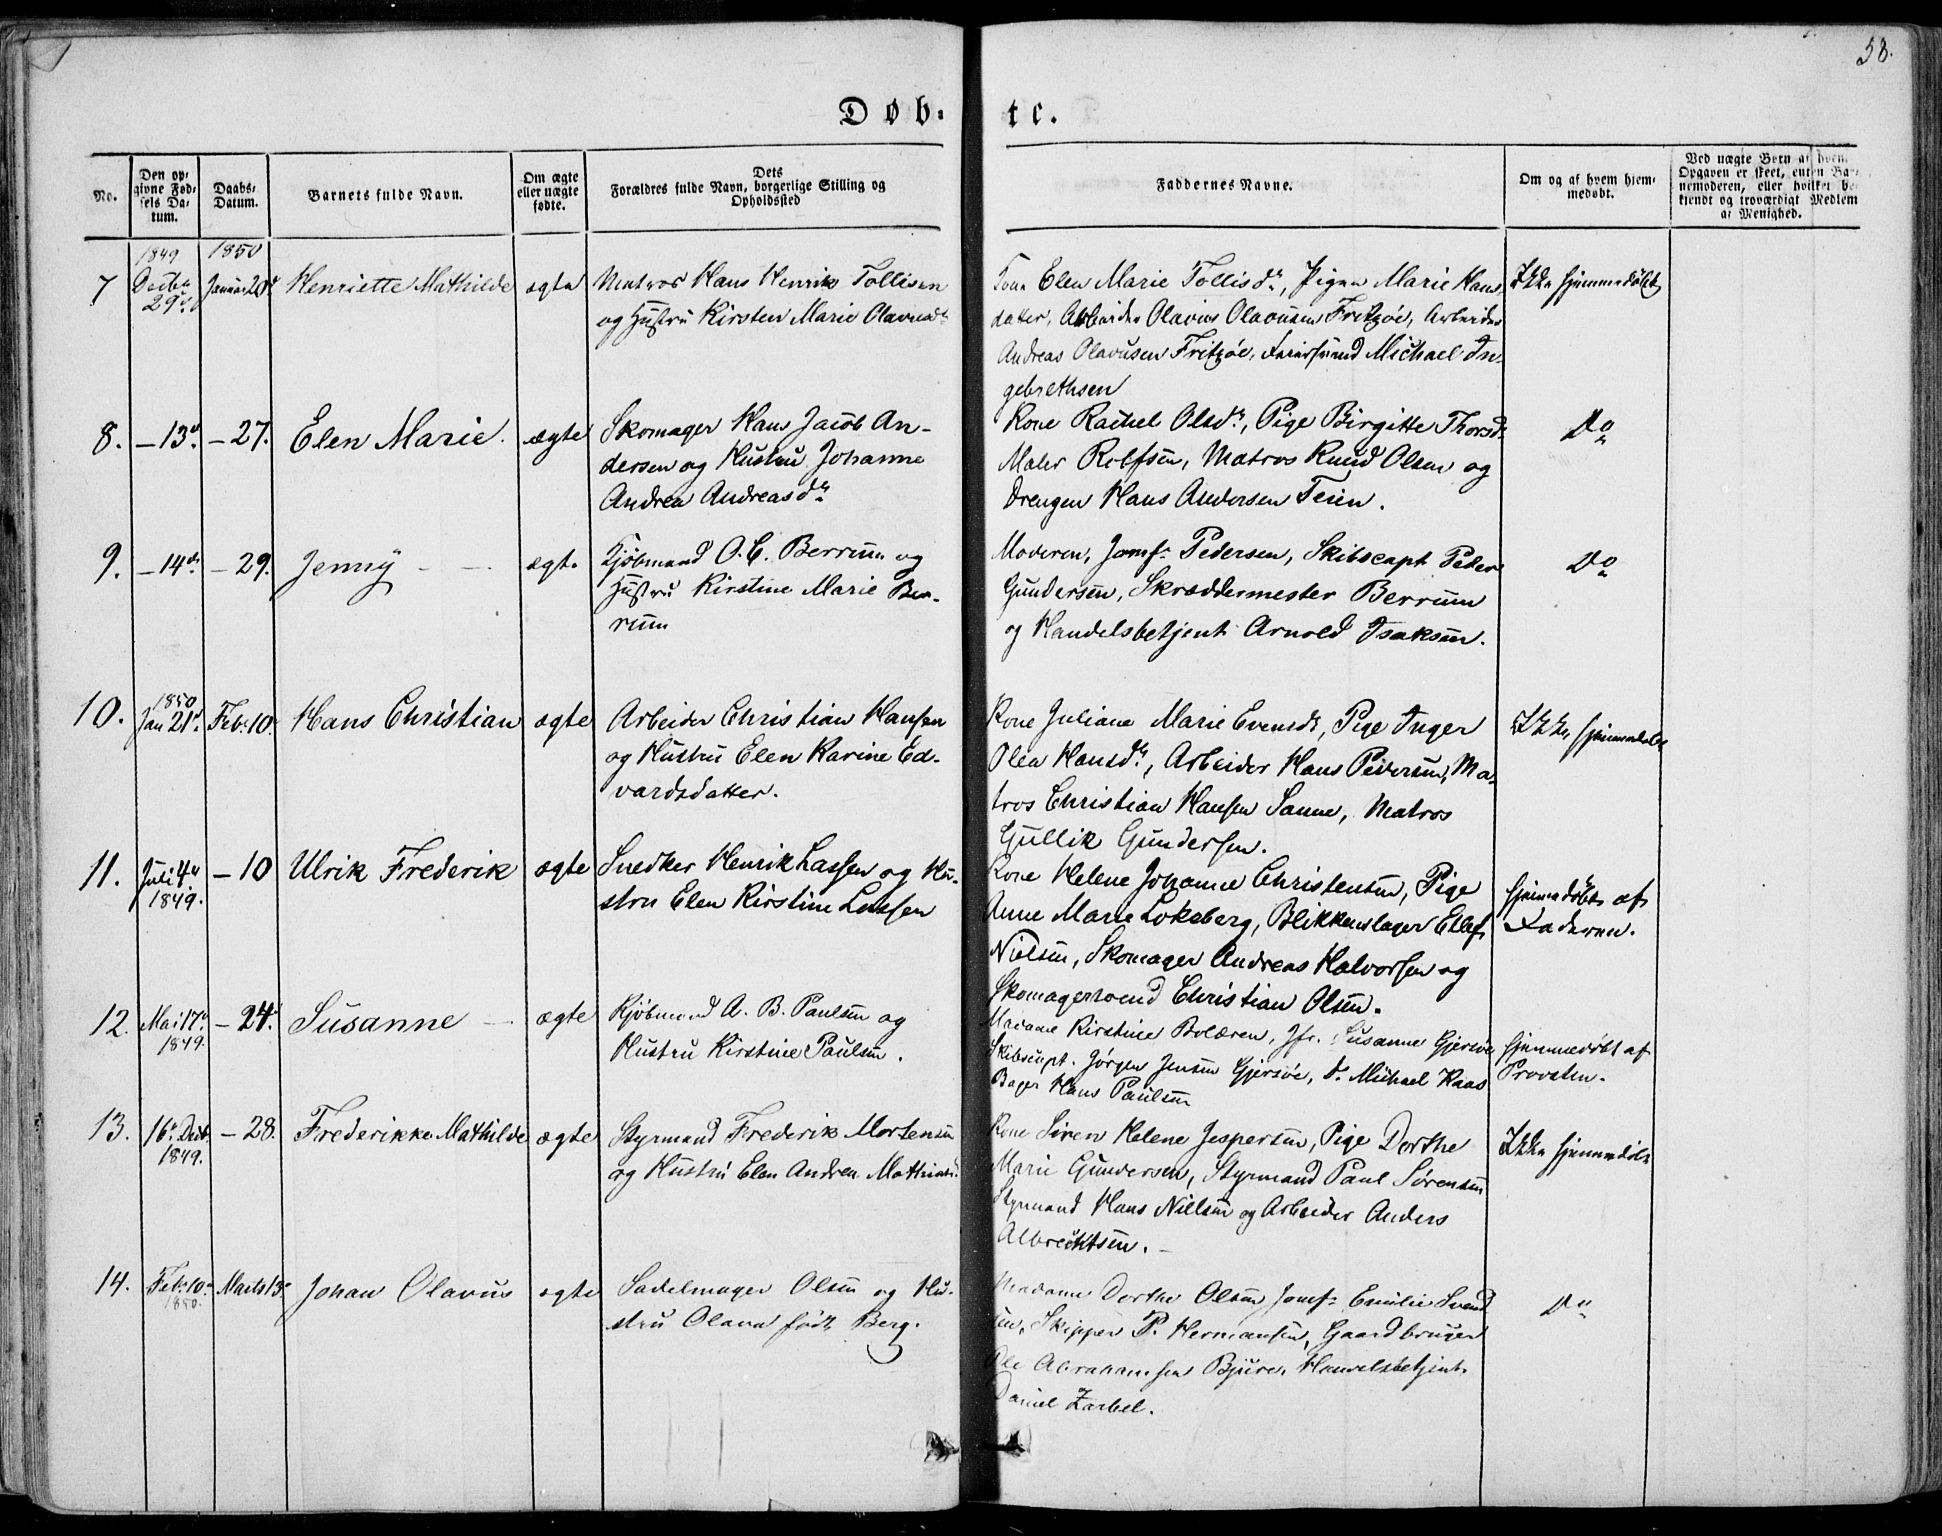 58.
Døb-
te.
No.
Den op-
givne Fød-
sels Da-
tum.
Daabs-
Datum.
Barnets fulde Navn.
Om ægte
eller uægte
fødte.
Dets
Forældres fulde Navn, borgerlige Stilling og
Opholdssted
Faddernes Navne.
Om og af hvem hjem-
medøbt.
Ved uægte Børn af hvem
Opgaven er skeet, enten Bar-
nemoderen, eller hvilket be-
kjendt og troværdigt Medlem
af Menighed.
1849 1850
7 Decbr 29d. Januar Henriette Mathilde ægte Matros Hans Henrik Tollisen
og Hustru Kirsten Marie Olavusdr
Kone Elen Marie Tollisdr, Pigen Marie Hans-
datter, Arbeider Olavus Olavusen Fritzøe, Arbeider
Andreas Olavusen Fritzøe, Michael In-
gebrethsen
Ikke hjemmedøbt
8. – 13d. – 27. Elen Marie. ægte Skomager Hans Jacob An-
dersen og Hustru Johanne
Andrea Andreasdr
Kone Rachel Olsdr, Pige Birgitte Thorsdr
Maler Rolfsen, Matros Knud Olsen og
Drengen Hans Andersen Teien.
Do
9. – 14de – 29. Jenny – – ægte Kjøbmand O. C. Berrum og
Hustru Kirstine Marie Ber-
rum
Moderen, Jomfr Pedersen, Skibscapt Peder
Gundersen, Skræddermester Berrum
og Handelsbetjent Arnold Isaksen.
Do
10. 1850 Jan 21d. Feb. 10. Hans Christian ægte Arbeider Christian Hansen
og Hustru Elen Karine Ed-
vardsdatter.
Kone Juliane Marie Evensdr, Pige Inger
Olea Hansdr, Arbeider Hans Pedersen, Ma-
tros Christian Hansen Sanne, Matros
Gullik Gundersen.
Ikke hjemmedøbt
11. Juli 4d 1849. – 10 Ulrik Frederik ægte Snedker Henrik Lassen og Hu-
stru Elen Kirstine Lassen
Kone Helene Johanne Christensen, Pige
Anne Marie Loksberg, Blikkenslager Ellef
Nielsen, Skomager Andreas Halvorsen og
Skomagersvend Christian Olsen.
Hjemmedøbt af
Faderen.
12. Mai 17d. 1849. – 24. Susanne – ægte Kjøbmand A. B. Paulsen og
Hustru Kirstine Paulsen.
Madame Kirstine Bolæren, Jfr. Susanne Gjersøe
Skibscapt. Jørgen Jensen Gjersøe, do Michael Kaas
Bager Hans Paulsen
Hjemmedøbt af
Provsten.
13. 16d Decb. 1849. – 28. Frederikke Mathilde ægte Styrmand Frederik Mortensen
og Hustru Elen Andrea Mathiasd.
Kone Siren Helene Jespersen, Pige Dorthe
Marie Gundersen, Styrmand Paul Sørensen
Styrmand Hans Nielsen og Arbeider Anders
Albrechtsen. –
Ikke hjemmedøbt
14. Feb. 10d 1850. Marts 13d Johan Olavus ægte Sadelmager Olsen og Hu-
stru Olava født Berg.
Madame Dorthe Olsen Jomfr Emilie Svend-
sen, Skipper P. Hermansen, Gaardbruger
Ole Abrahamsen Bjure, Handelsbetjent
Daniel Zarbel.
Do